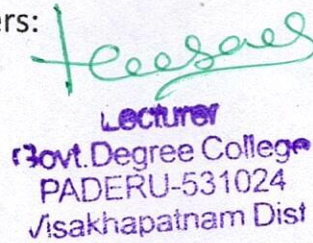 ers:
Lecturer
Govt.Degree College
PADERU-531024
Visakhapatnam Dist